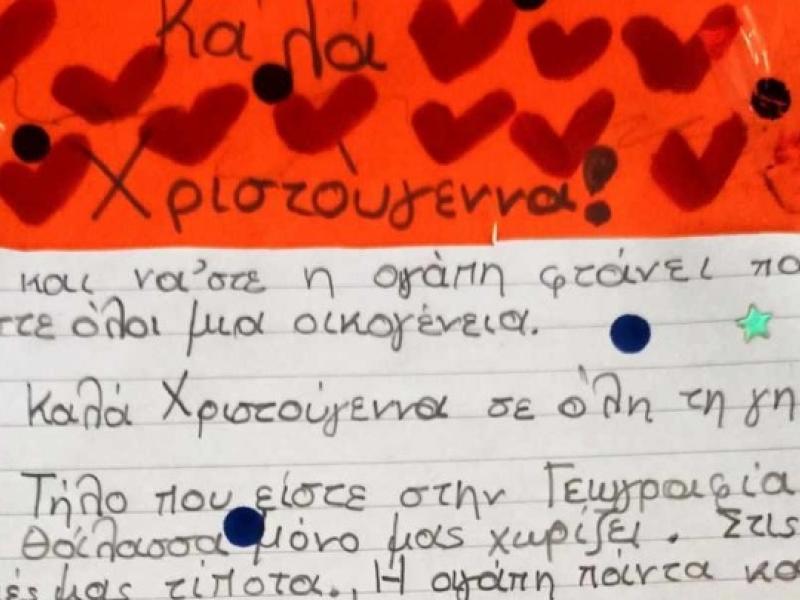 Καλά
Χριστούγεννα!
και να'στε η αγάπη φτάνει πο
τε όλοι μια οικογένεια.
Καλά Χριστούγεννα σε όλη τη γη
Τήλο που είστε στην Γεωγραφία
Θάλασσα μόνο μας χωρίζει. Στις
ές μας τίποτα., Η αγάπη πάντα κα